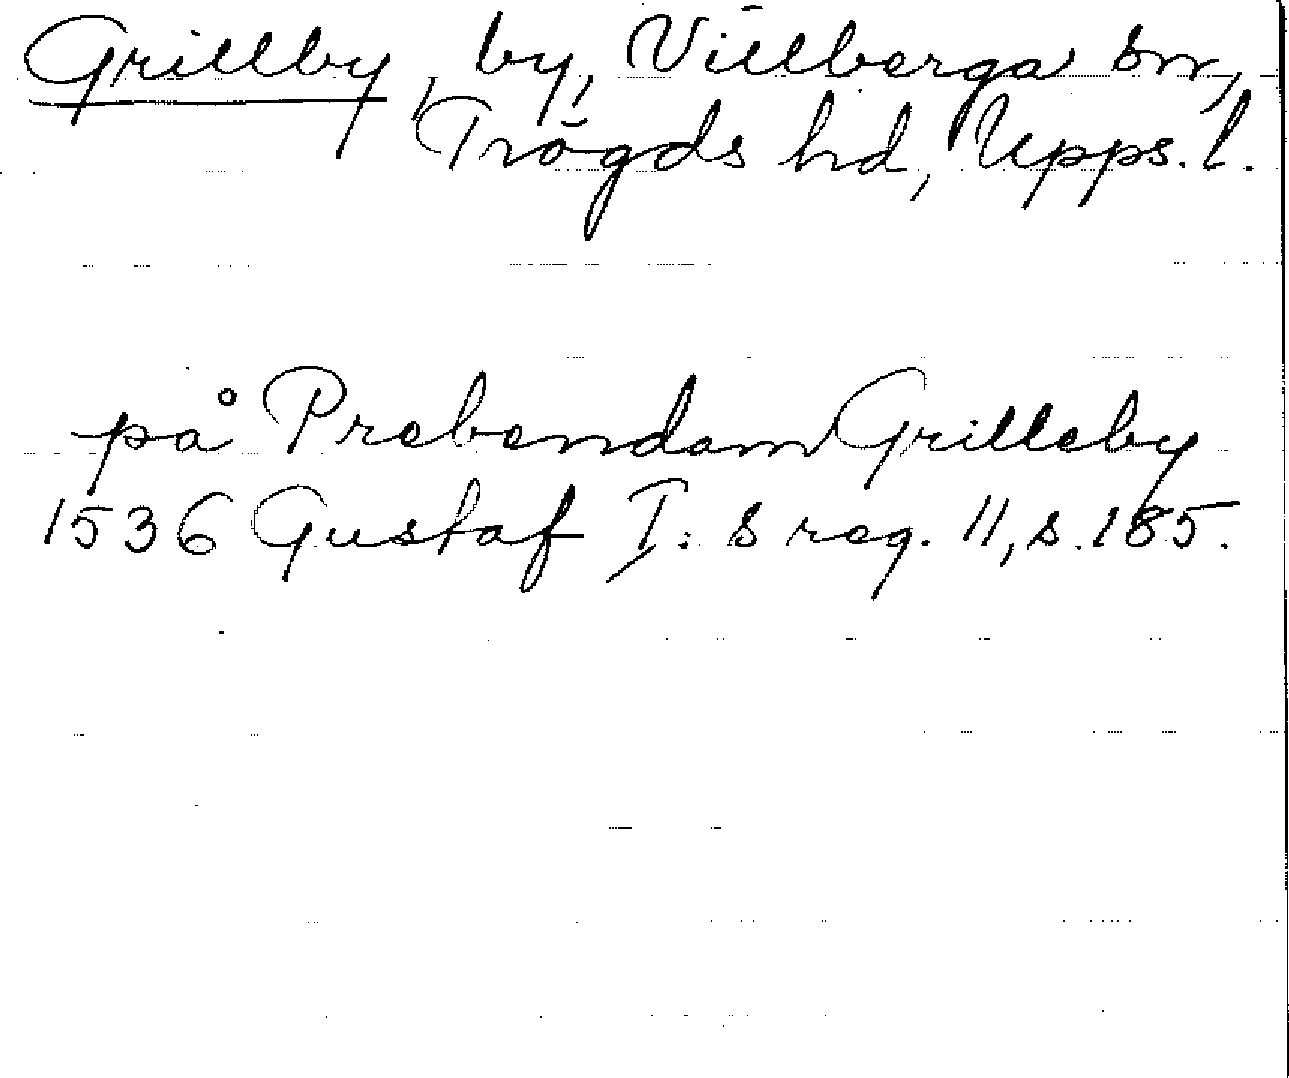 Grillby, by, Villberga sn,
Trögds hd, Upps. l.
på Prebendam Grilleby
1536 Gustaf I:s reg. 11, s. 185.